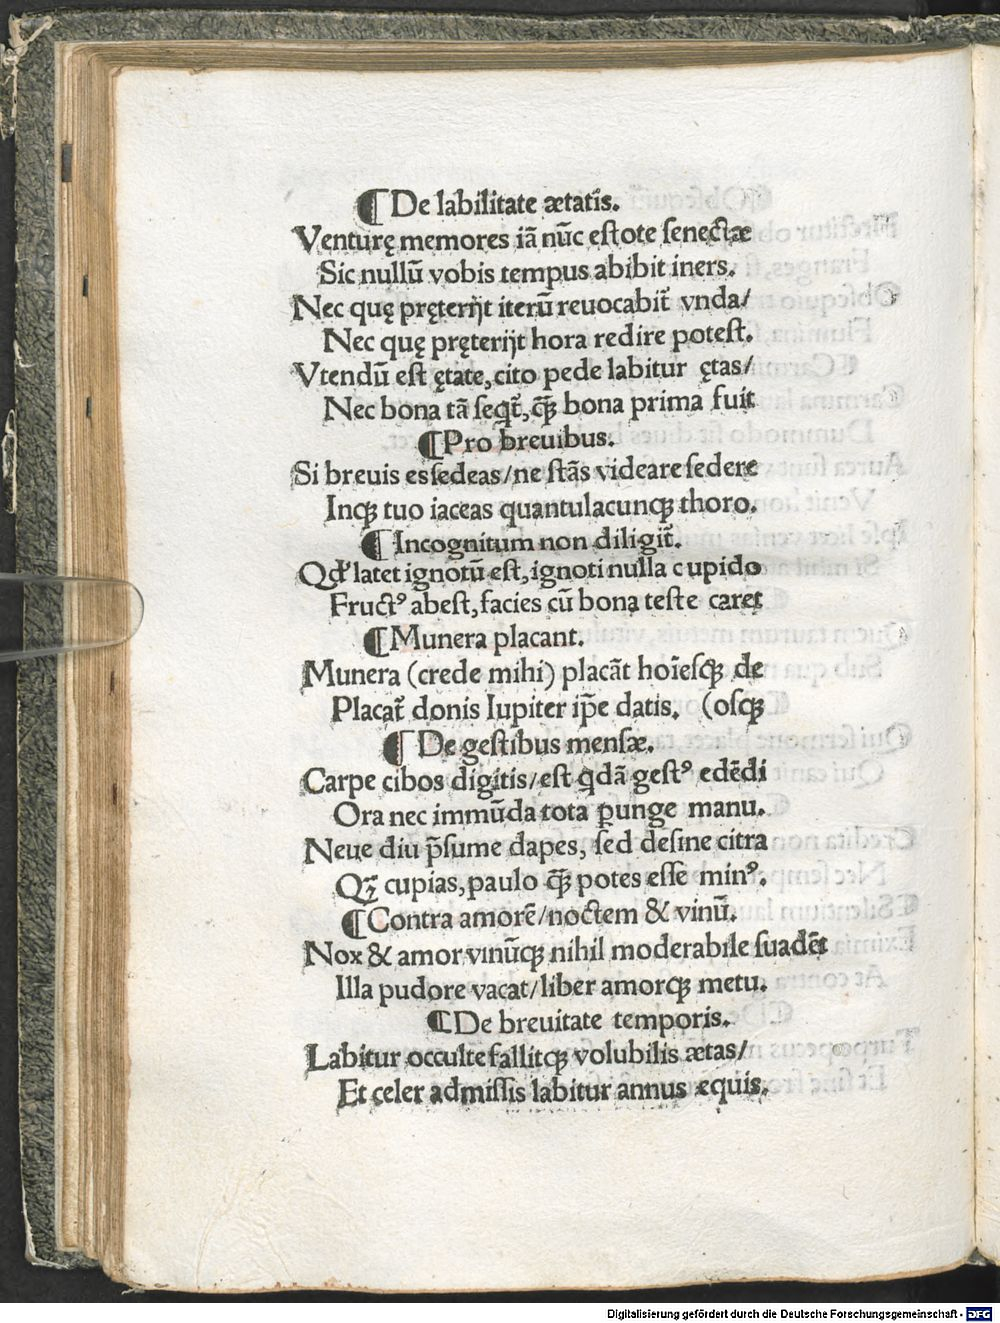 ¶ De labilitate ætatis.
Venturę memores iã nũc estote senectæ
Sic nullũ vobis tempus abibit iners.
Nec quę pręterijt iterũ reuocabit̃ vnda/
Nec quę pręterijt hora redire potest.
Vtendũ est ętate, cito pede labitur ętas/
Nec bona tã seqt̃, q̃ꝫ bona prima fuit
¶ Pro breuibus.
Si breuis es sedeas/ne stãs videare sedere
Inqꝫ tuo iaceas quantulacunqꝫ thoro.
¶ Incognitum non diligit̃.
Qd̕ latet ignotũ est, ignoti nulla cupido
Fructꝰ abest, facies cũ bona teste caret
¶ Munera placant.
Munera (crede mihi) placãt hoĩesqꝫ de
Placat̃ donis Iupiter ip̃e datis. (osqꝫ
¶ De gestibus mensæ.
Carpe cibos digitis/est q̇dã gestꝰ edẽdi
Ora nec immũda tota ꝑunge manu.
Neue diu p̃sume dapes, sed desine citra
Qꝫ cupias, paulo q̃ꝫ potes esse minꝰ.
¶ Contra amorẽ/noctem & vinũ.
Nox & amor vinũqꝫ nihil moderabile suadẽt
Illa pudore vacat/liber amorqꝫ metu.
¶ De breuitate temporis.
Labitur occulte fallitqꝫ volubilis ætas/
Et celer admissis labitur annus æquis.
Digitalisierung gefördert durch die Deutsche Forschungsgemeinschaft - DFG